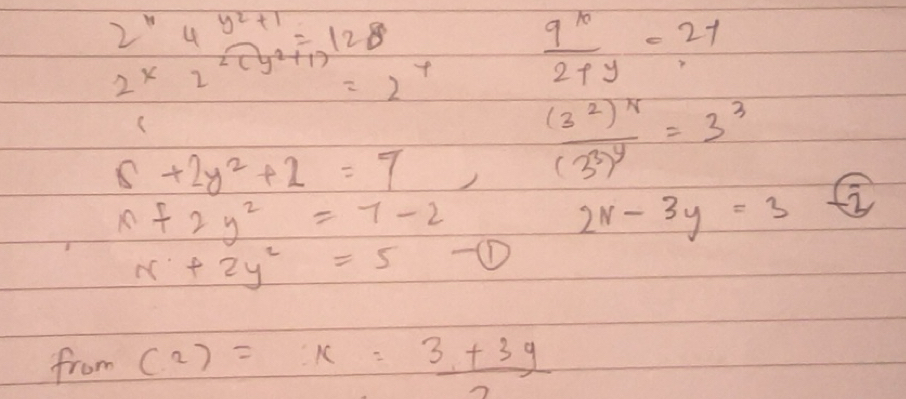 2^x 4^(y²+1) = 128
2^x 2^(2(y²+1)) = 2^7
x + 2y² + 2 = 7,
x + 2y² = 7 - 2
x + 2y² = 5 - ①
9^x / 27^y = 27
(3²)^x / (3³)^y = 3³
2x - 3y = 3 - ②
from (2) = x = 3 + 3y / 2